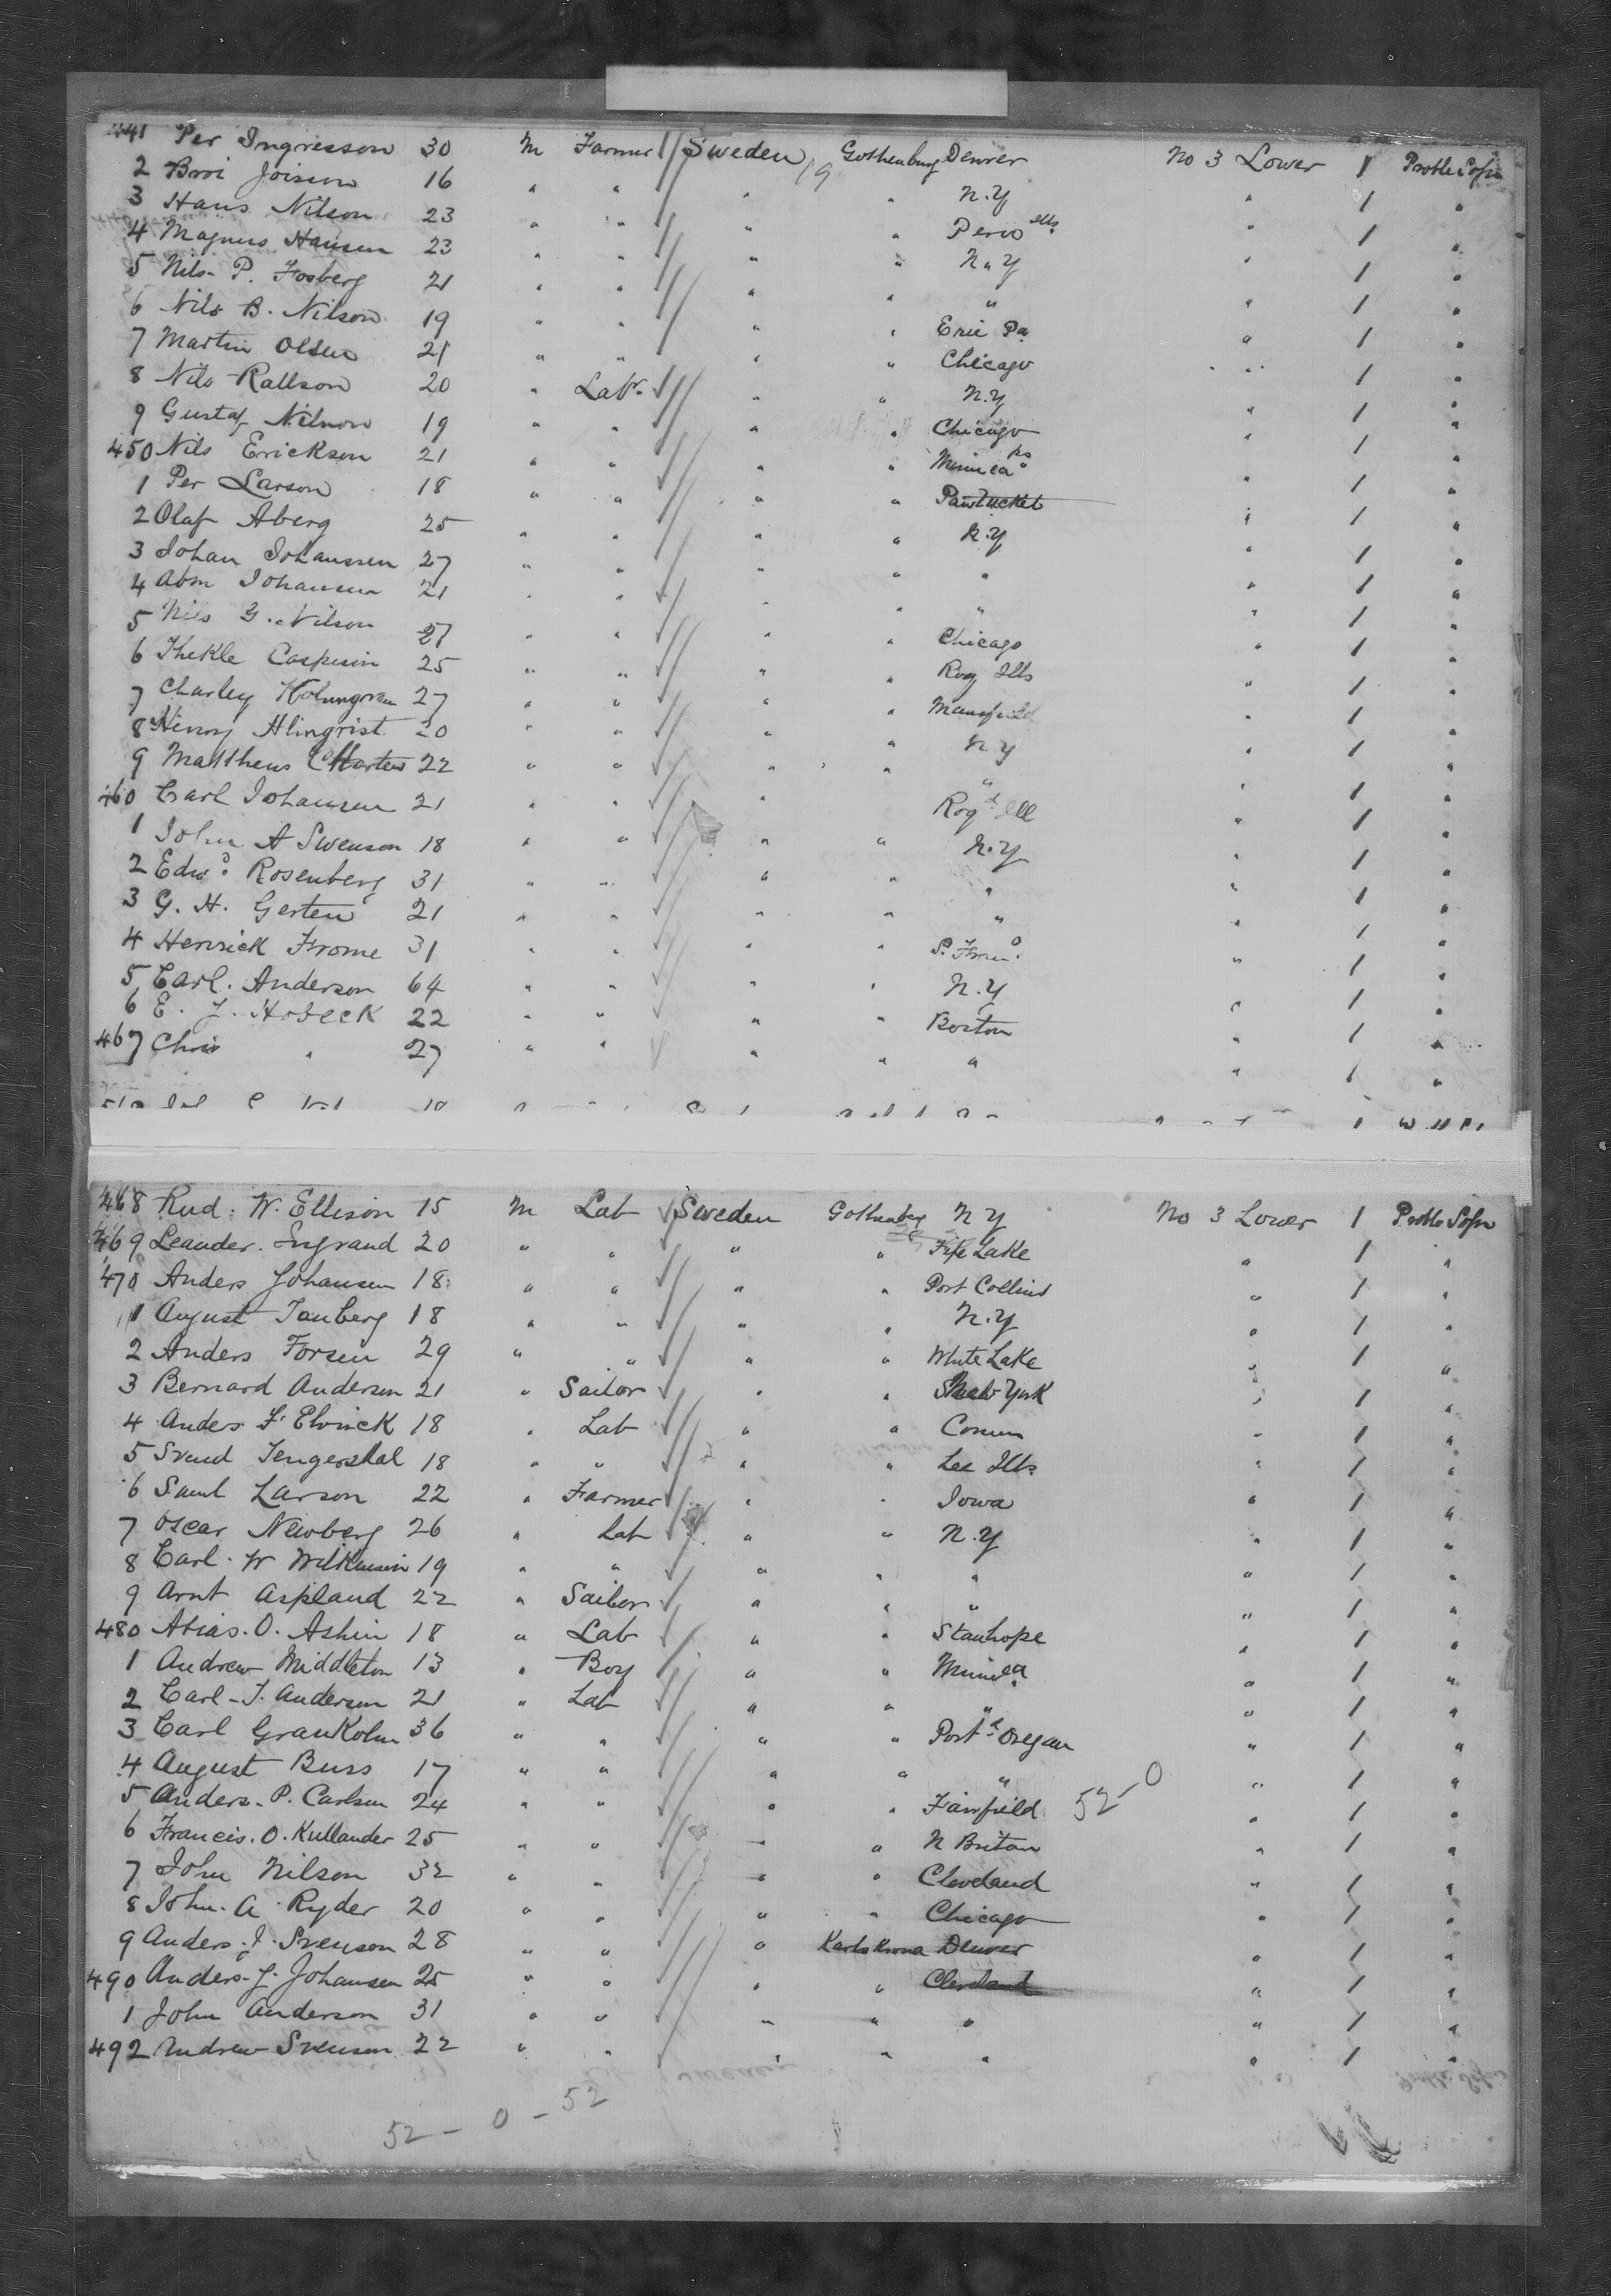 441 Per Ingresson 30 M Farmer Sweden Gothenburg Denver No 3 Lower 1 Protle Sojn
2 16 " " " " N.Y " 1 "
3 Hans Nilson 23 " " " " Peru Ills " 1 "
4 Magnus Hansen 23 " " " " N " Y " 1 "
5 Nils P. Fosberg 21 " " " " " " 1 "
6 Nils B. Nilson 19 " " " " Erie Pa " 1 "
7 Martin Olsen 21 " " " " Chicago " 1 "
8 Nils Rallson 20 " Labr. " " N.Y " 1 "
9 Gustaf Nilson 19 " " " " Chicago " 1 "
450 Nils Erickson 21 " " " " Minnea " 1 "
1 Per Larson 18 " " " " Pawtucket " 1 "
2 Olaf Aberg 25 " " " " N.Y " 1 "
3 Johan Johanssen 27 " " " " " " 1 "
4 Abm Johansen 21 " " " " " " 1 "
5 Nils G. Nilson 27 " " " " Chicago " 1 "
6 Thekle Caspersin 25 " " " " Ills " 1 "
7 Charley Holmgren 27 " " " " Mansfield " 1 "
8 Henry Almqrist 20 " " " " N.Y " 1 "
9 Matthews 22 " " " " " " 1 "
460 Carl Johansen 21 " " " Ill " 1 "
1 John A Swenson 18 " " " " N.Y " 1 "
2 Edwd. Rosenberg 31 " " " " " " 1 "
3 G. H. Gerten 21 " " " " " " 1 "
4 Henrick Frome 31 " " " " S. Fran " 1 "
5 Carl. Anderson 64 " " " N.Y " 1 "
6 E. J. Hobeck 22 " " " " Boston " 1 "
467 Chris " 27 " " " " " " 1 "
468 Rud. W. Ellison 15 M Lab Sweden Gothenberg N Y No 3 Lower 1 Protle Sojn
469 Leander. Ingrand 20 " " " " Fife Lake " 1 "
470 Anders Johansen 18 " " " " Port Collins " 1 "
1 August Tanberg 18 " " " " N.Y " 1 "
2 Anders Forsen 29 " " " " White Lake " 1 "
3 Bernard Andersen 21 " Sailor " " New York " 1 "
4 Anders F. Elvrick 18 " Lab " " Conn " 1 "
5 Svend Tengerstal 18 " " " " Lee Ills " 1 "
6 Saml Larson 22 " Farmer " " Iowa " 1 "
7 Oscar Newberg 26 " Lab " " N.Y " 1 "
8 Carl. W Wilkensin 19 " " " " " " 1 "
9 Arnt Aspland 22 " Sailor " " " " 1 "
480 Abias. O. Ashin 18 " Lab " " Stanhope " 1 "
1 Andrew Middleton 13 " Boy " " Minnea " 1 "
2 Carl. J. Andersen 21 " Lab " " " " 1 "
3 Carl GranKolm 36 " " " " Portd Oregan " 1 "
4 August Buss 17 " " " " " " 1 "
5 Anders. P. Carlsen 24 " " " " Fairfield 52-0 " 1 "
6 Francis. O. Kullander 25 " " " " N Briton " 1 "
7 John Nilson 32 " " " " Cleveland " 1 "
8 John. A. Ryder 20 " " " " Chicago " 1 "
9 Anders. J. Svenson 28 " " " Karlskrona Denver " 1 "
490 Anders. J. Johansen 25 " " " " Cleveland " 1 "
1 John Anderson 31 " " " " " " 1 "
492 Andrew Svenson 22 " " " " " 1 "
52 - 0 - 52